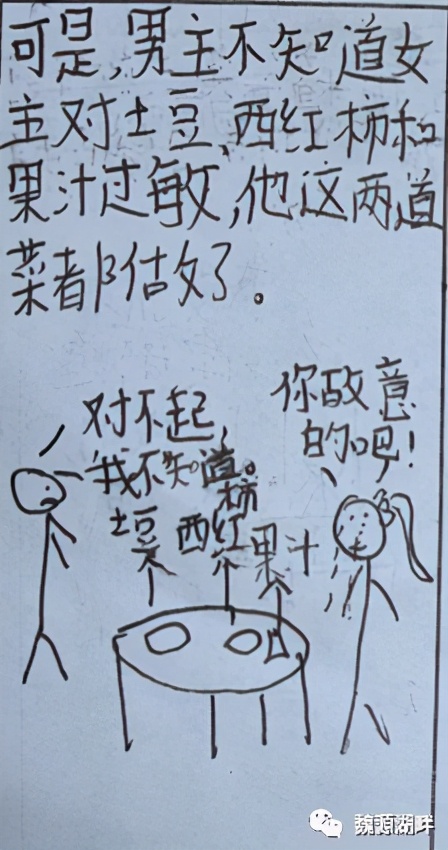 可是,男主不知道女
主对土豆、西红柿和
果汁过敏,他这两道
菜都估攵了。
对不起,
我不知道。
你故意
的吧!
土豆
西红柿
果汁
魏源湖畔